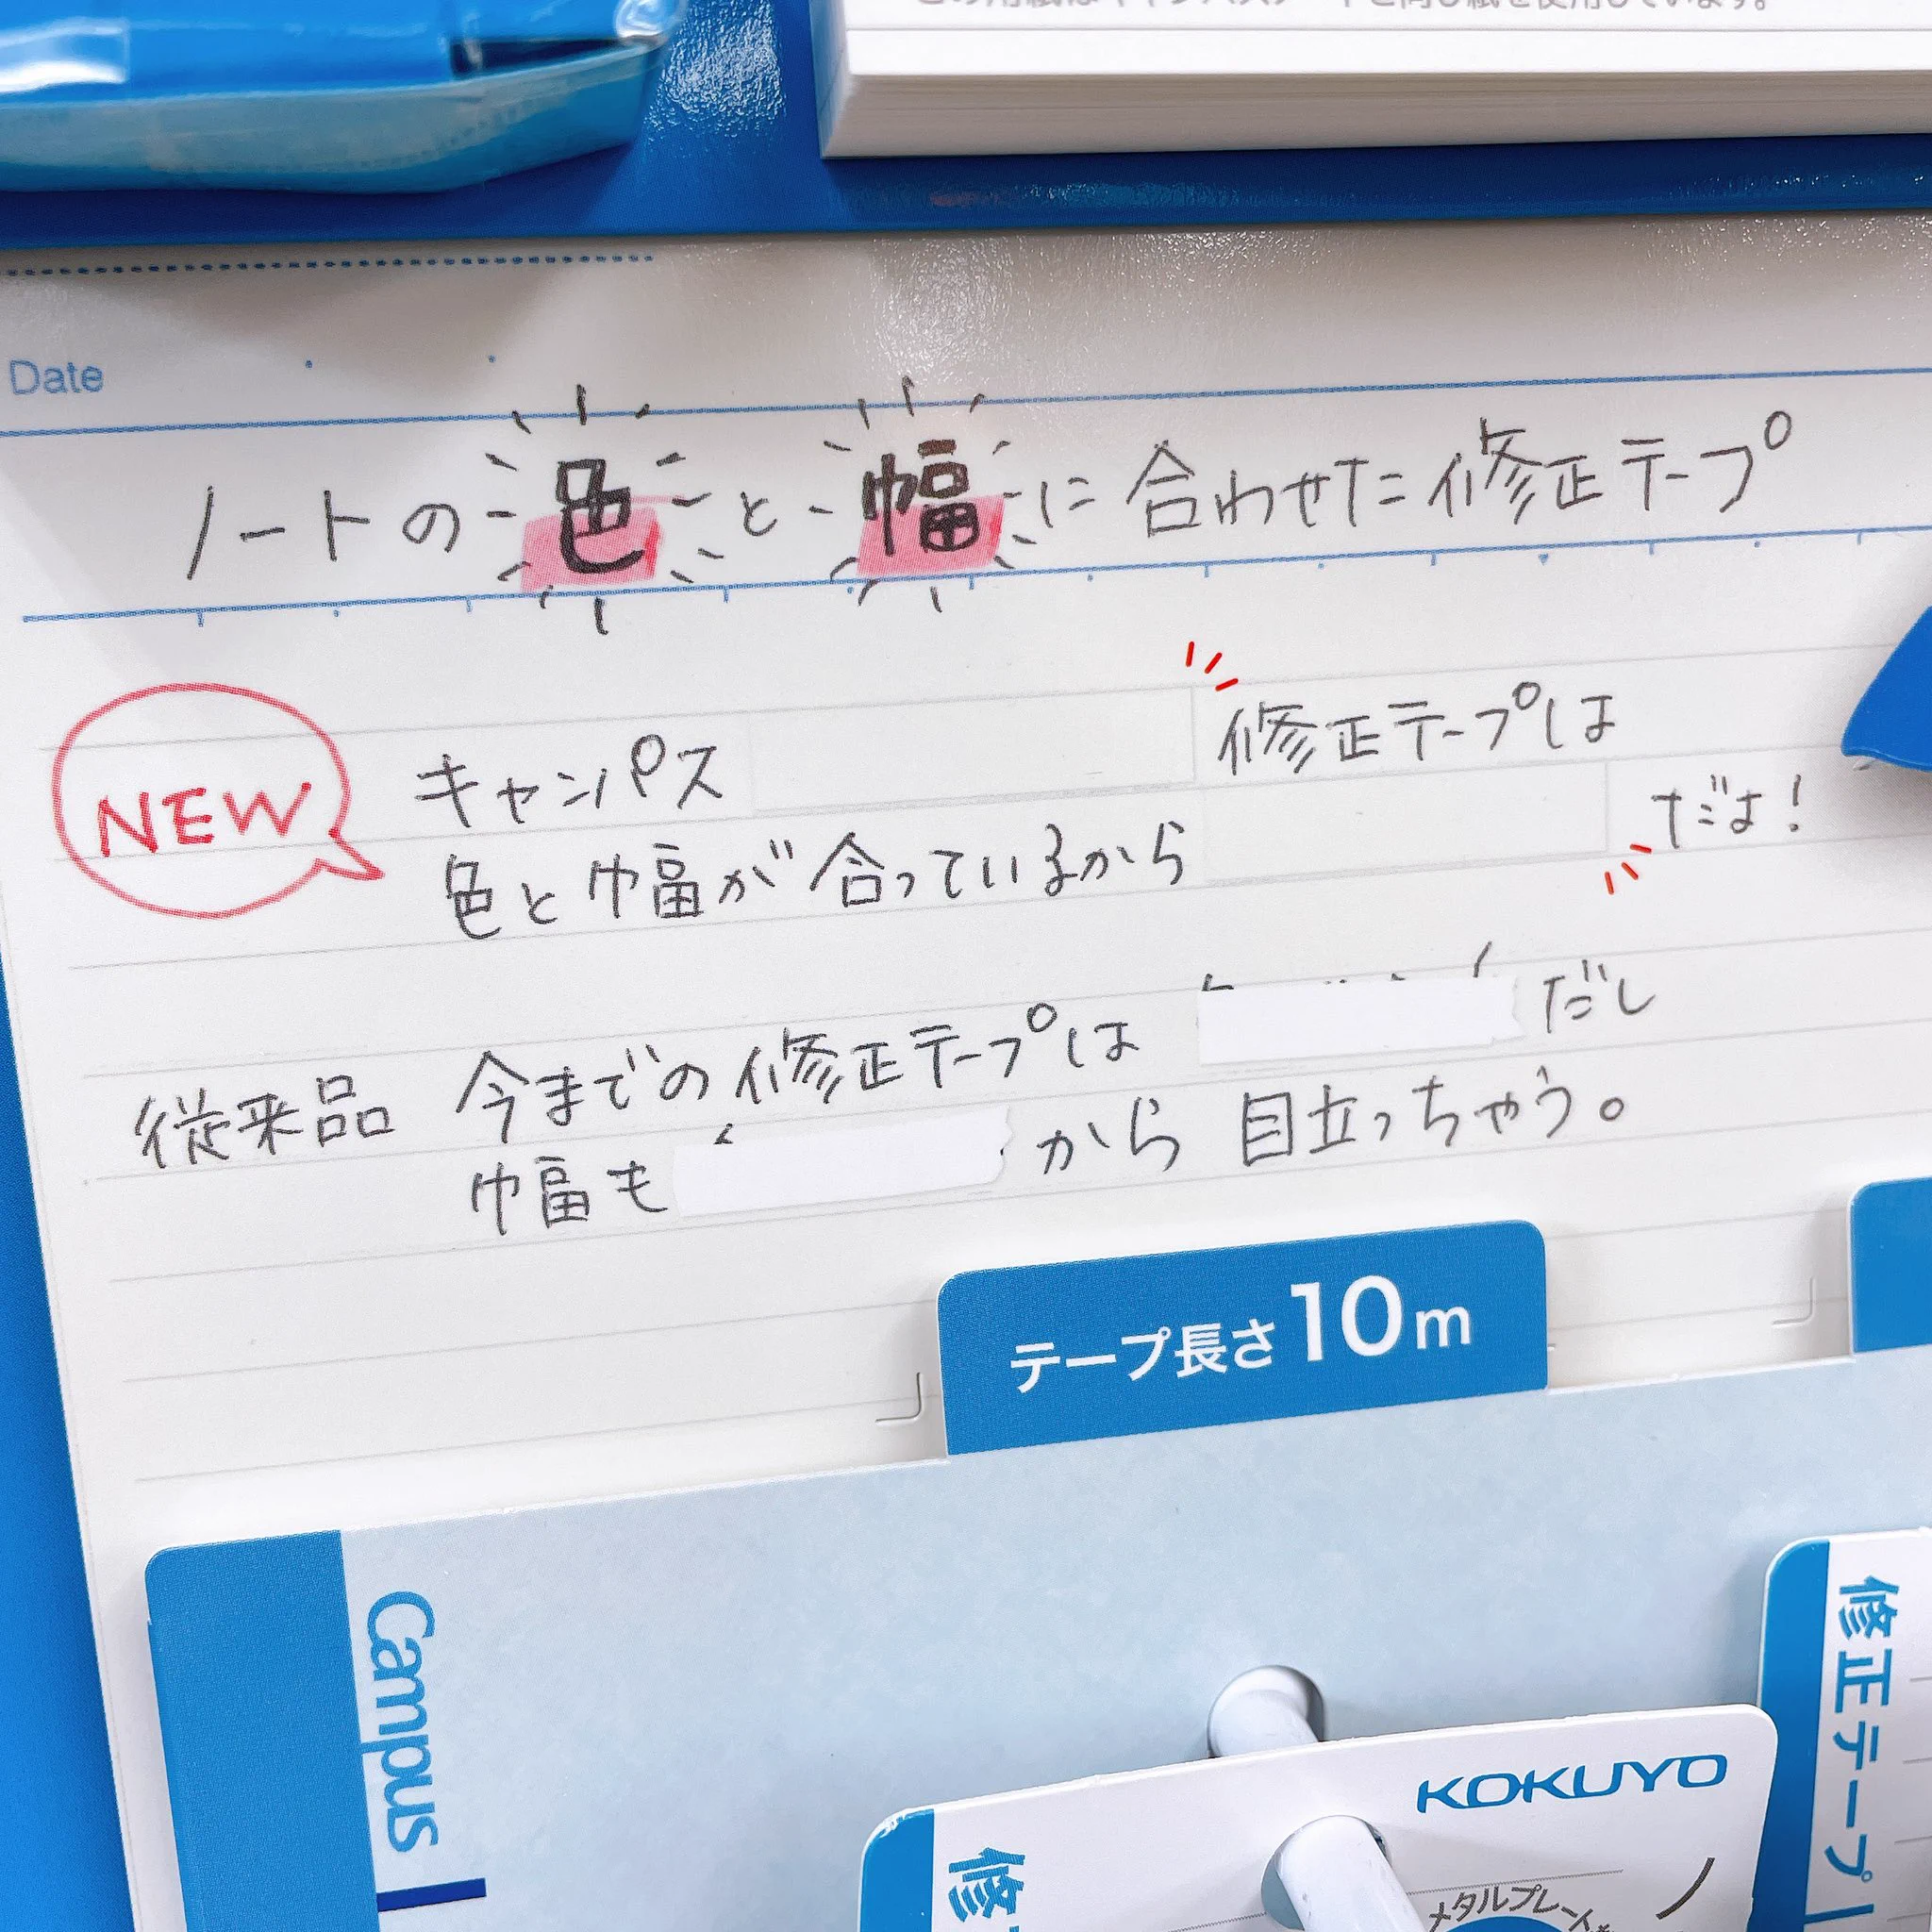 Date
ノートの色と幅に合わせた修正テープ
NEW
キャンパス 修正テープは
色と幅が合っているから だよ!
従来品 今までの修正テープは だし
幅も から 目立っちゃう。
テープ長さ10m
Campus
KOKUYO
修正テープ
修
メタルプレート